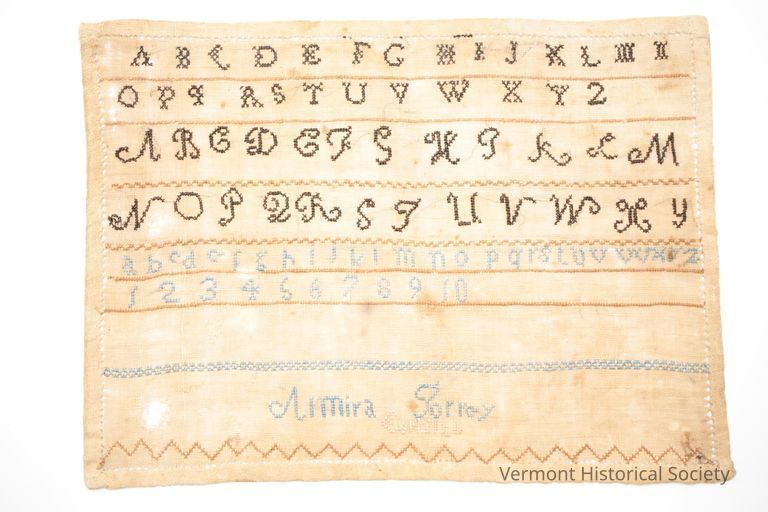 A B C D E F G H I J K L M N
O P Q R S T U V W X Y Z
A B C D E F G H I K L M
N O P Q R S T U V W X Y
a b c d e f g h i j k l m n o p q r s t u v w x y z
1 2 3 4 5 6 7 8 9 10
Almira Torrey
Vermont Historical Society